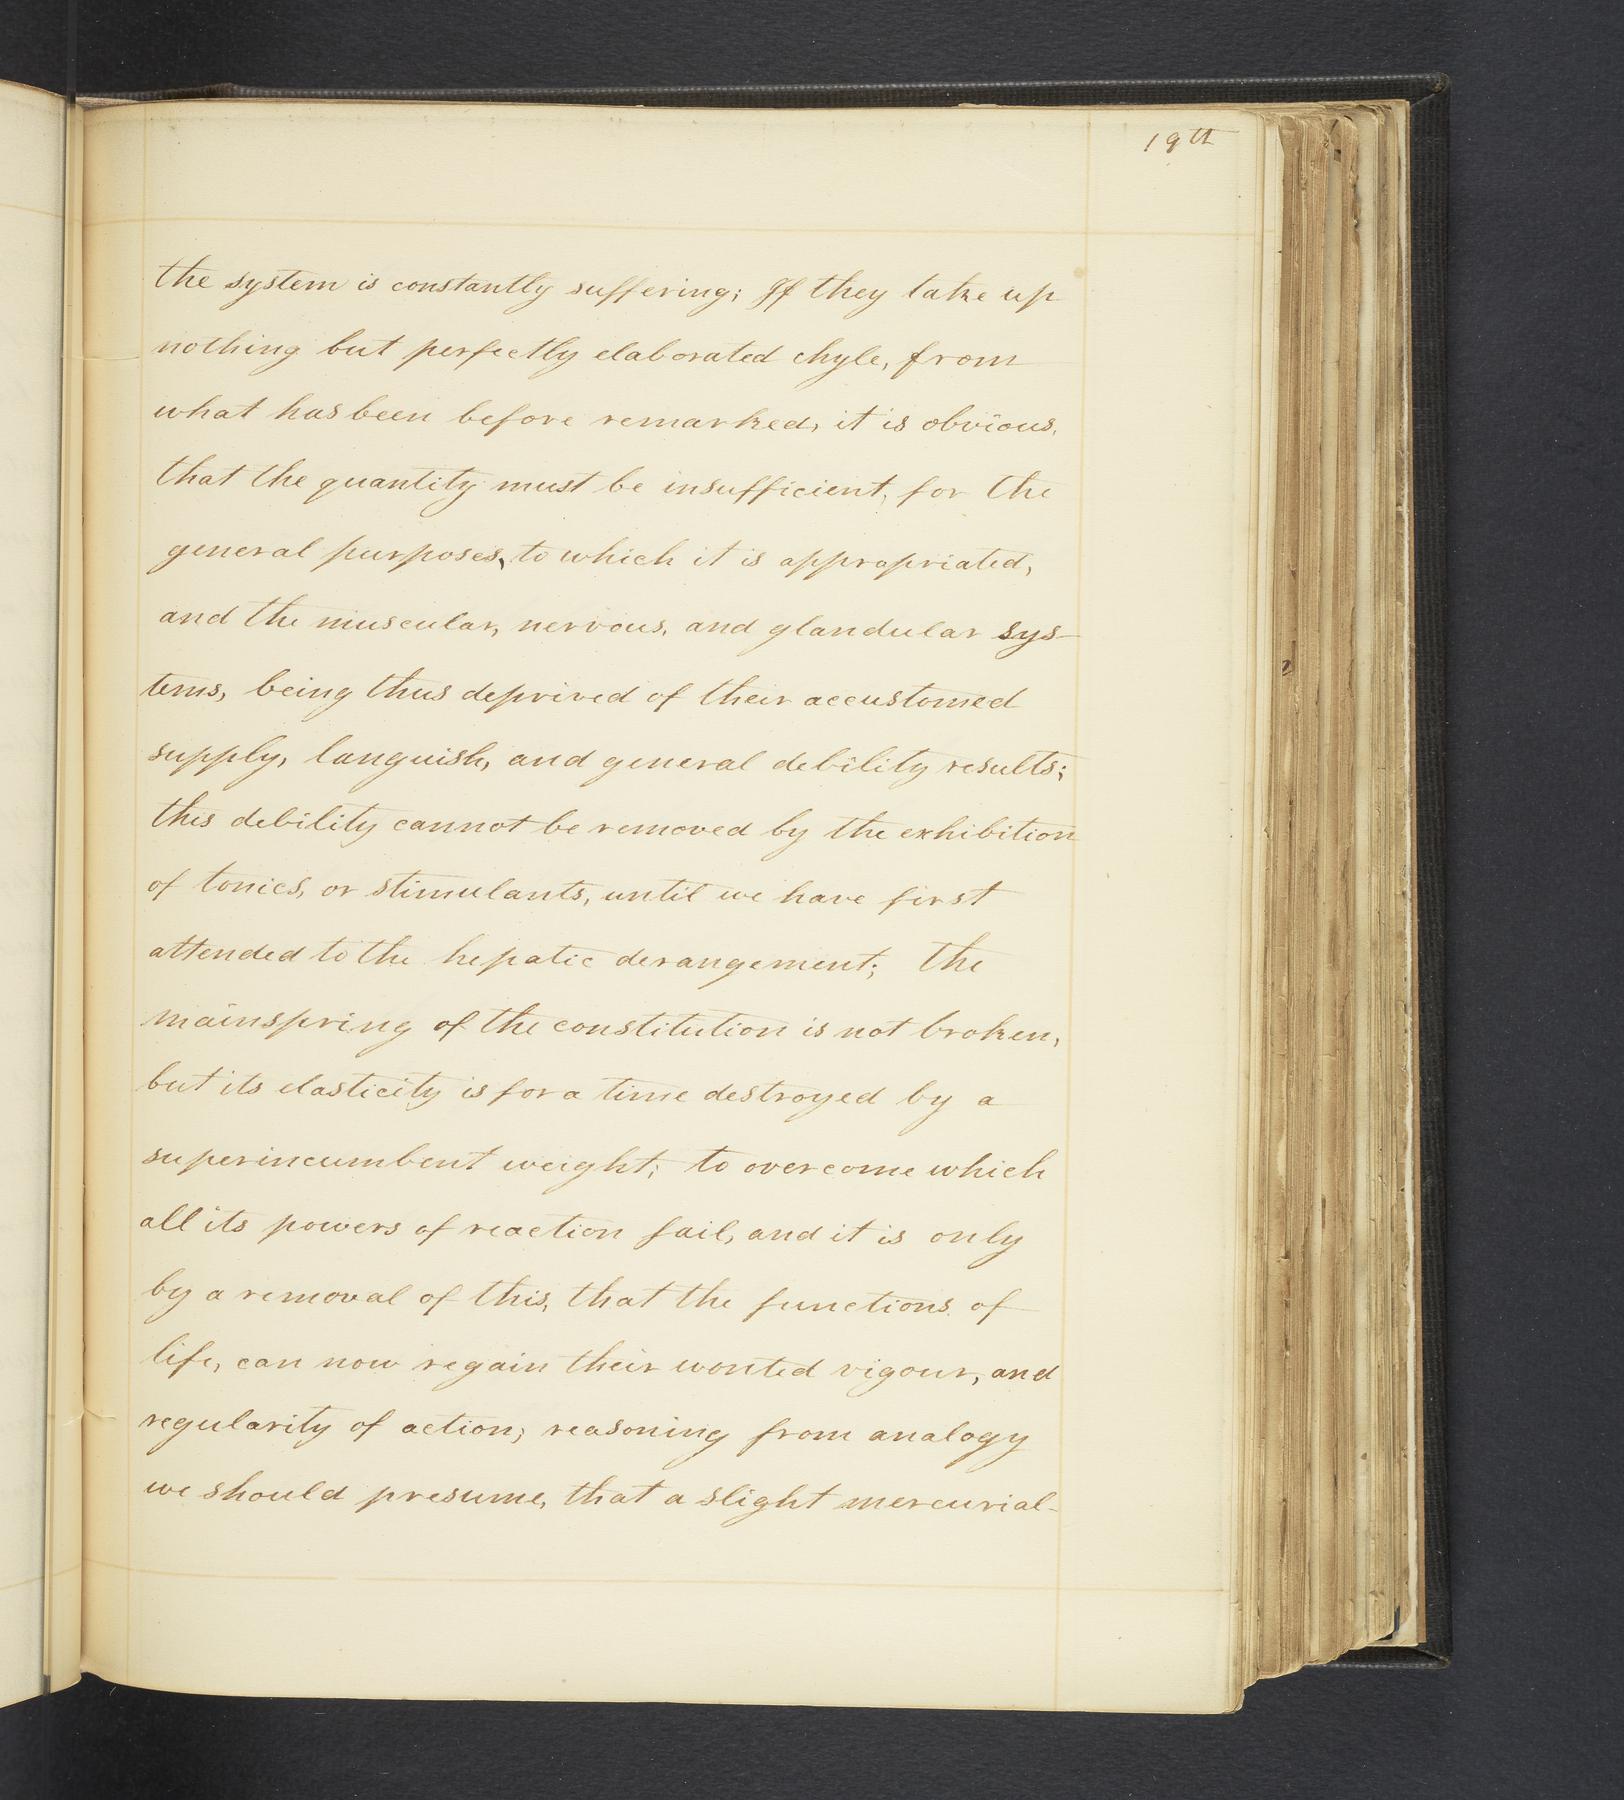 19th
the system is constantly suffering; If they take up
nothing but perfectly elaborated chyle, from
what has been before remarked, it is obvious,
that the quantity must be insufficient, for the
general purposes, to which it is appropriated,
and the muscular, nervous, and glandular sys-
tems, being thus deprived of their accustomed
supply, languish, and general debility results;
this debility cannot be removed by the exhibition
of tonics, or stimulants, until we have first
attended to the hepatic derangement; the
mainspring of the constitution is not broken,
but its elasticity is for a time destroyed by a
superincumbent weight; to overcome which
all its powers of reaction fail, and it is only
by a removal of this, that the functions of
life, can now regain their wonted vigour, and
regularity of action; reasoning from analogy
we should presume, that a slight mercurial-